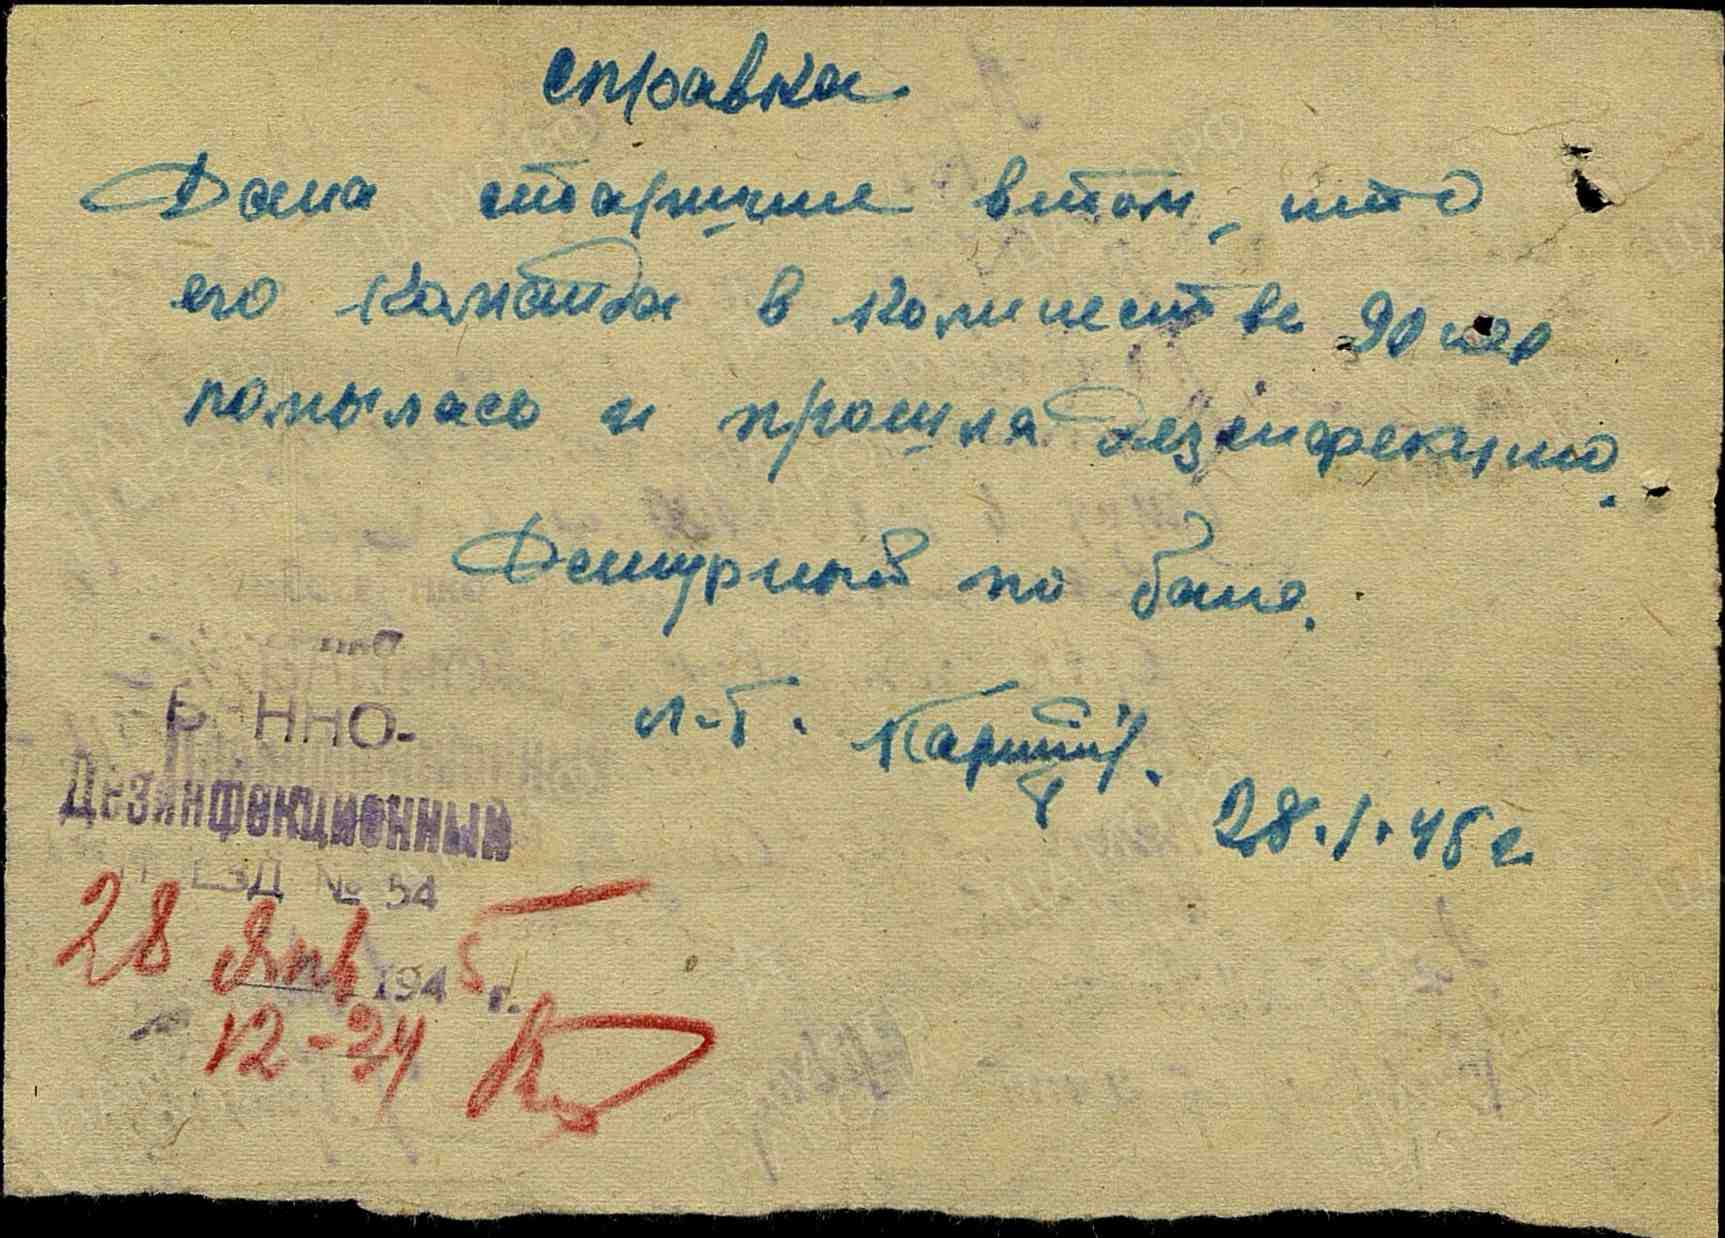 справка
Дана старшине в том, что
его команда в количестве 90 чел
помылась и прошла дезинфекцию.
Дежурный по бане.
л-т.
28.1.45 г
Дезинфекционный
№ 54
28 янв 1945 г.
12-24